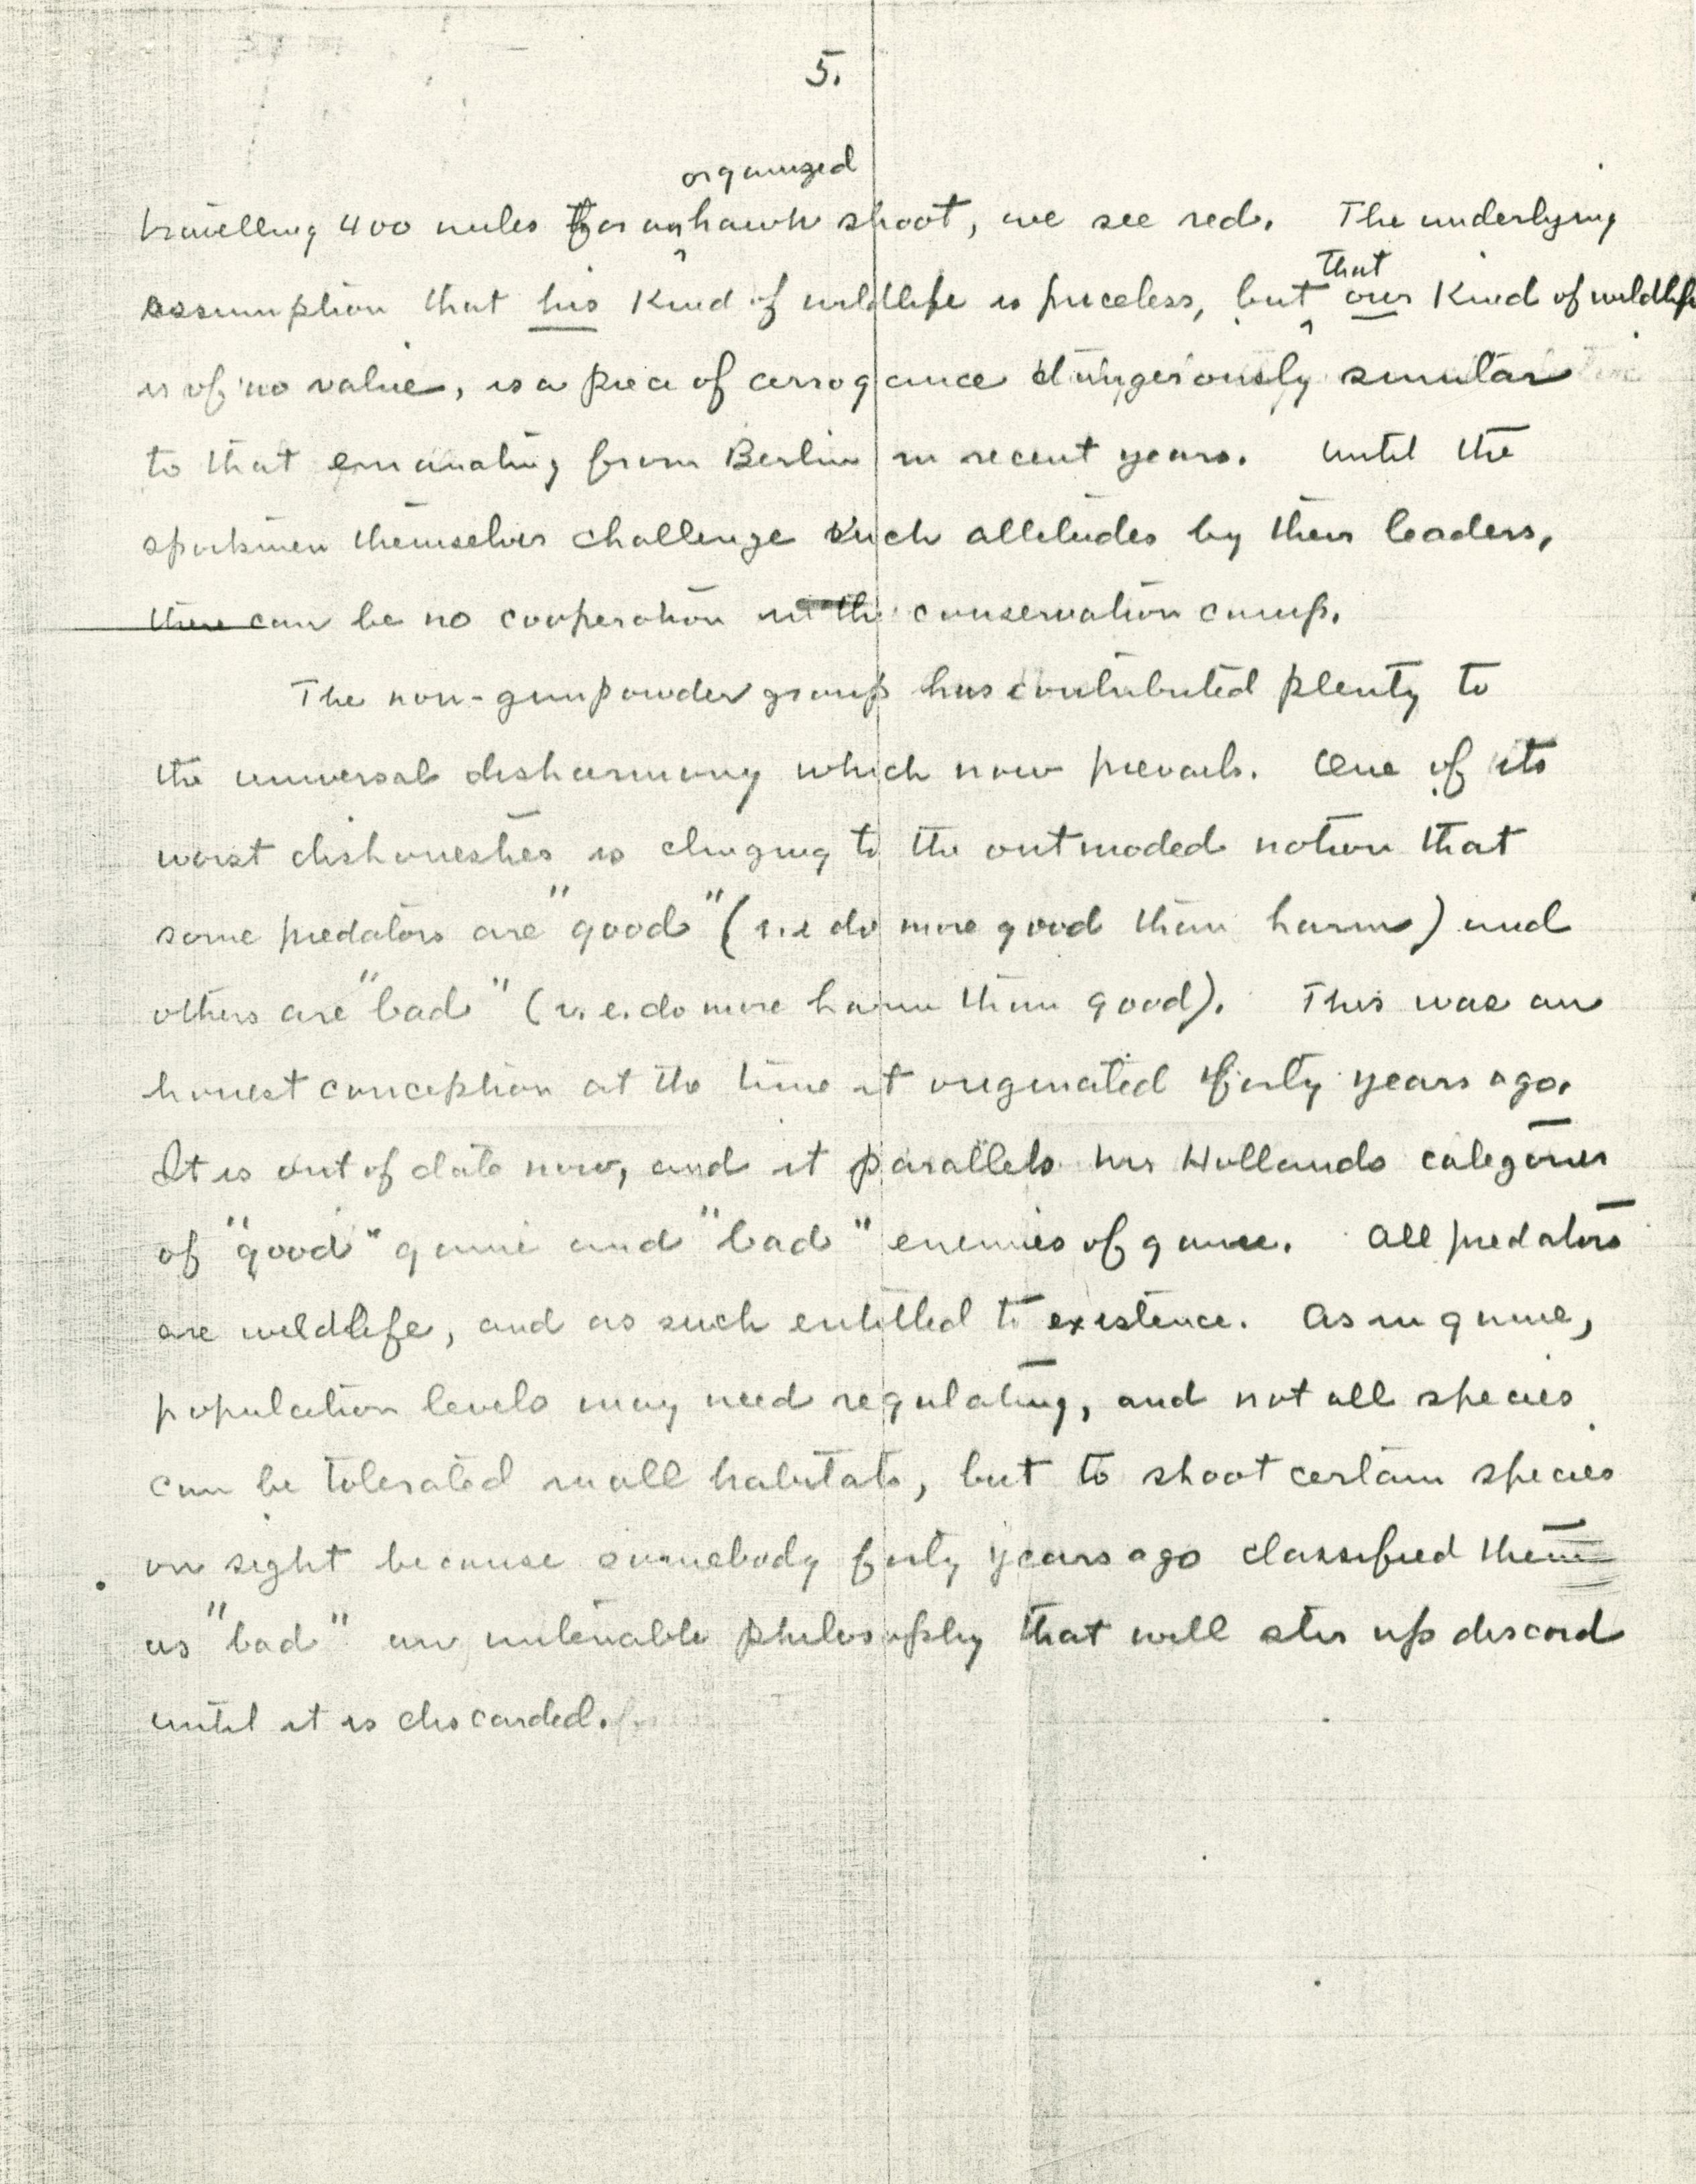 5.
organized
travelling 400 miles for an hawk shoot, we see red. The underlying
that
assumption that his kind of wildlife is priceless, but our kind of wildlife
is of no value, is a piece of arrogance dangerously similar
to that emanating from Berlin in recent years. Until the
sportsmen themselves challenge such attitudes by their leaders,
there can be no cooperation in the conservation camp.
The non-gunpowder group has contributed plenty to
the universal disharmony which now prevails. One of its
worst dishonesties is clinging to the outmoded notion that
some predators are "good" (i.e do more good than harm) and
others are "bad" (i.e. do more harm than good). This was an
honest conception at the time it originated forty years ago.
It is out of date now, and it parallels Mr Hollands categories
of "good" game and "bad" enemies of game. All predators
are wildlife, and as such entitled to existence. As in game,
population levels may need regulating, and not all species
can be tolerated in all habitats, but to shoot certain species
on sight because somebody forty years ago classified them
as "bad" is an untenable philosophy that will stir up discord
until it is discarded.